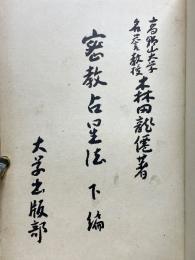 高野山大学
名誉教授 森田龍僊著
密教占星法 下編
大学出版部